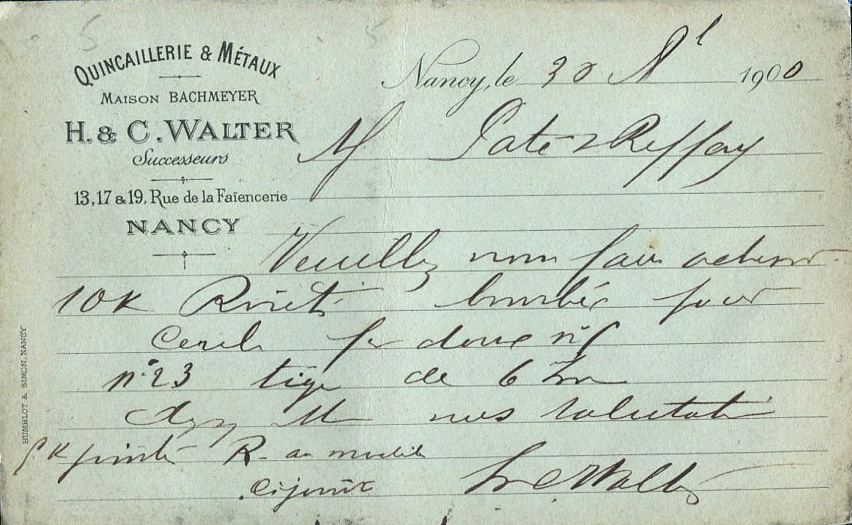 QUINCAILLERIE & MÉTAUX
MAISON BACHMEYER
H. & C. WALTER
Successeurs
13, 17 & 19, Rue de la Faïencerie
NANCY
Nancy, le 30 Al 1900
M Pate & Reffay
Veuillez nous faire
10 K Rivets bombés pour
cercle fer doux
n° 23 tige de 6
nos salutations
pointes R. au modèle
ci joint
H & C Walter
HUMBLOT & SIMON. NANCY